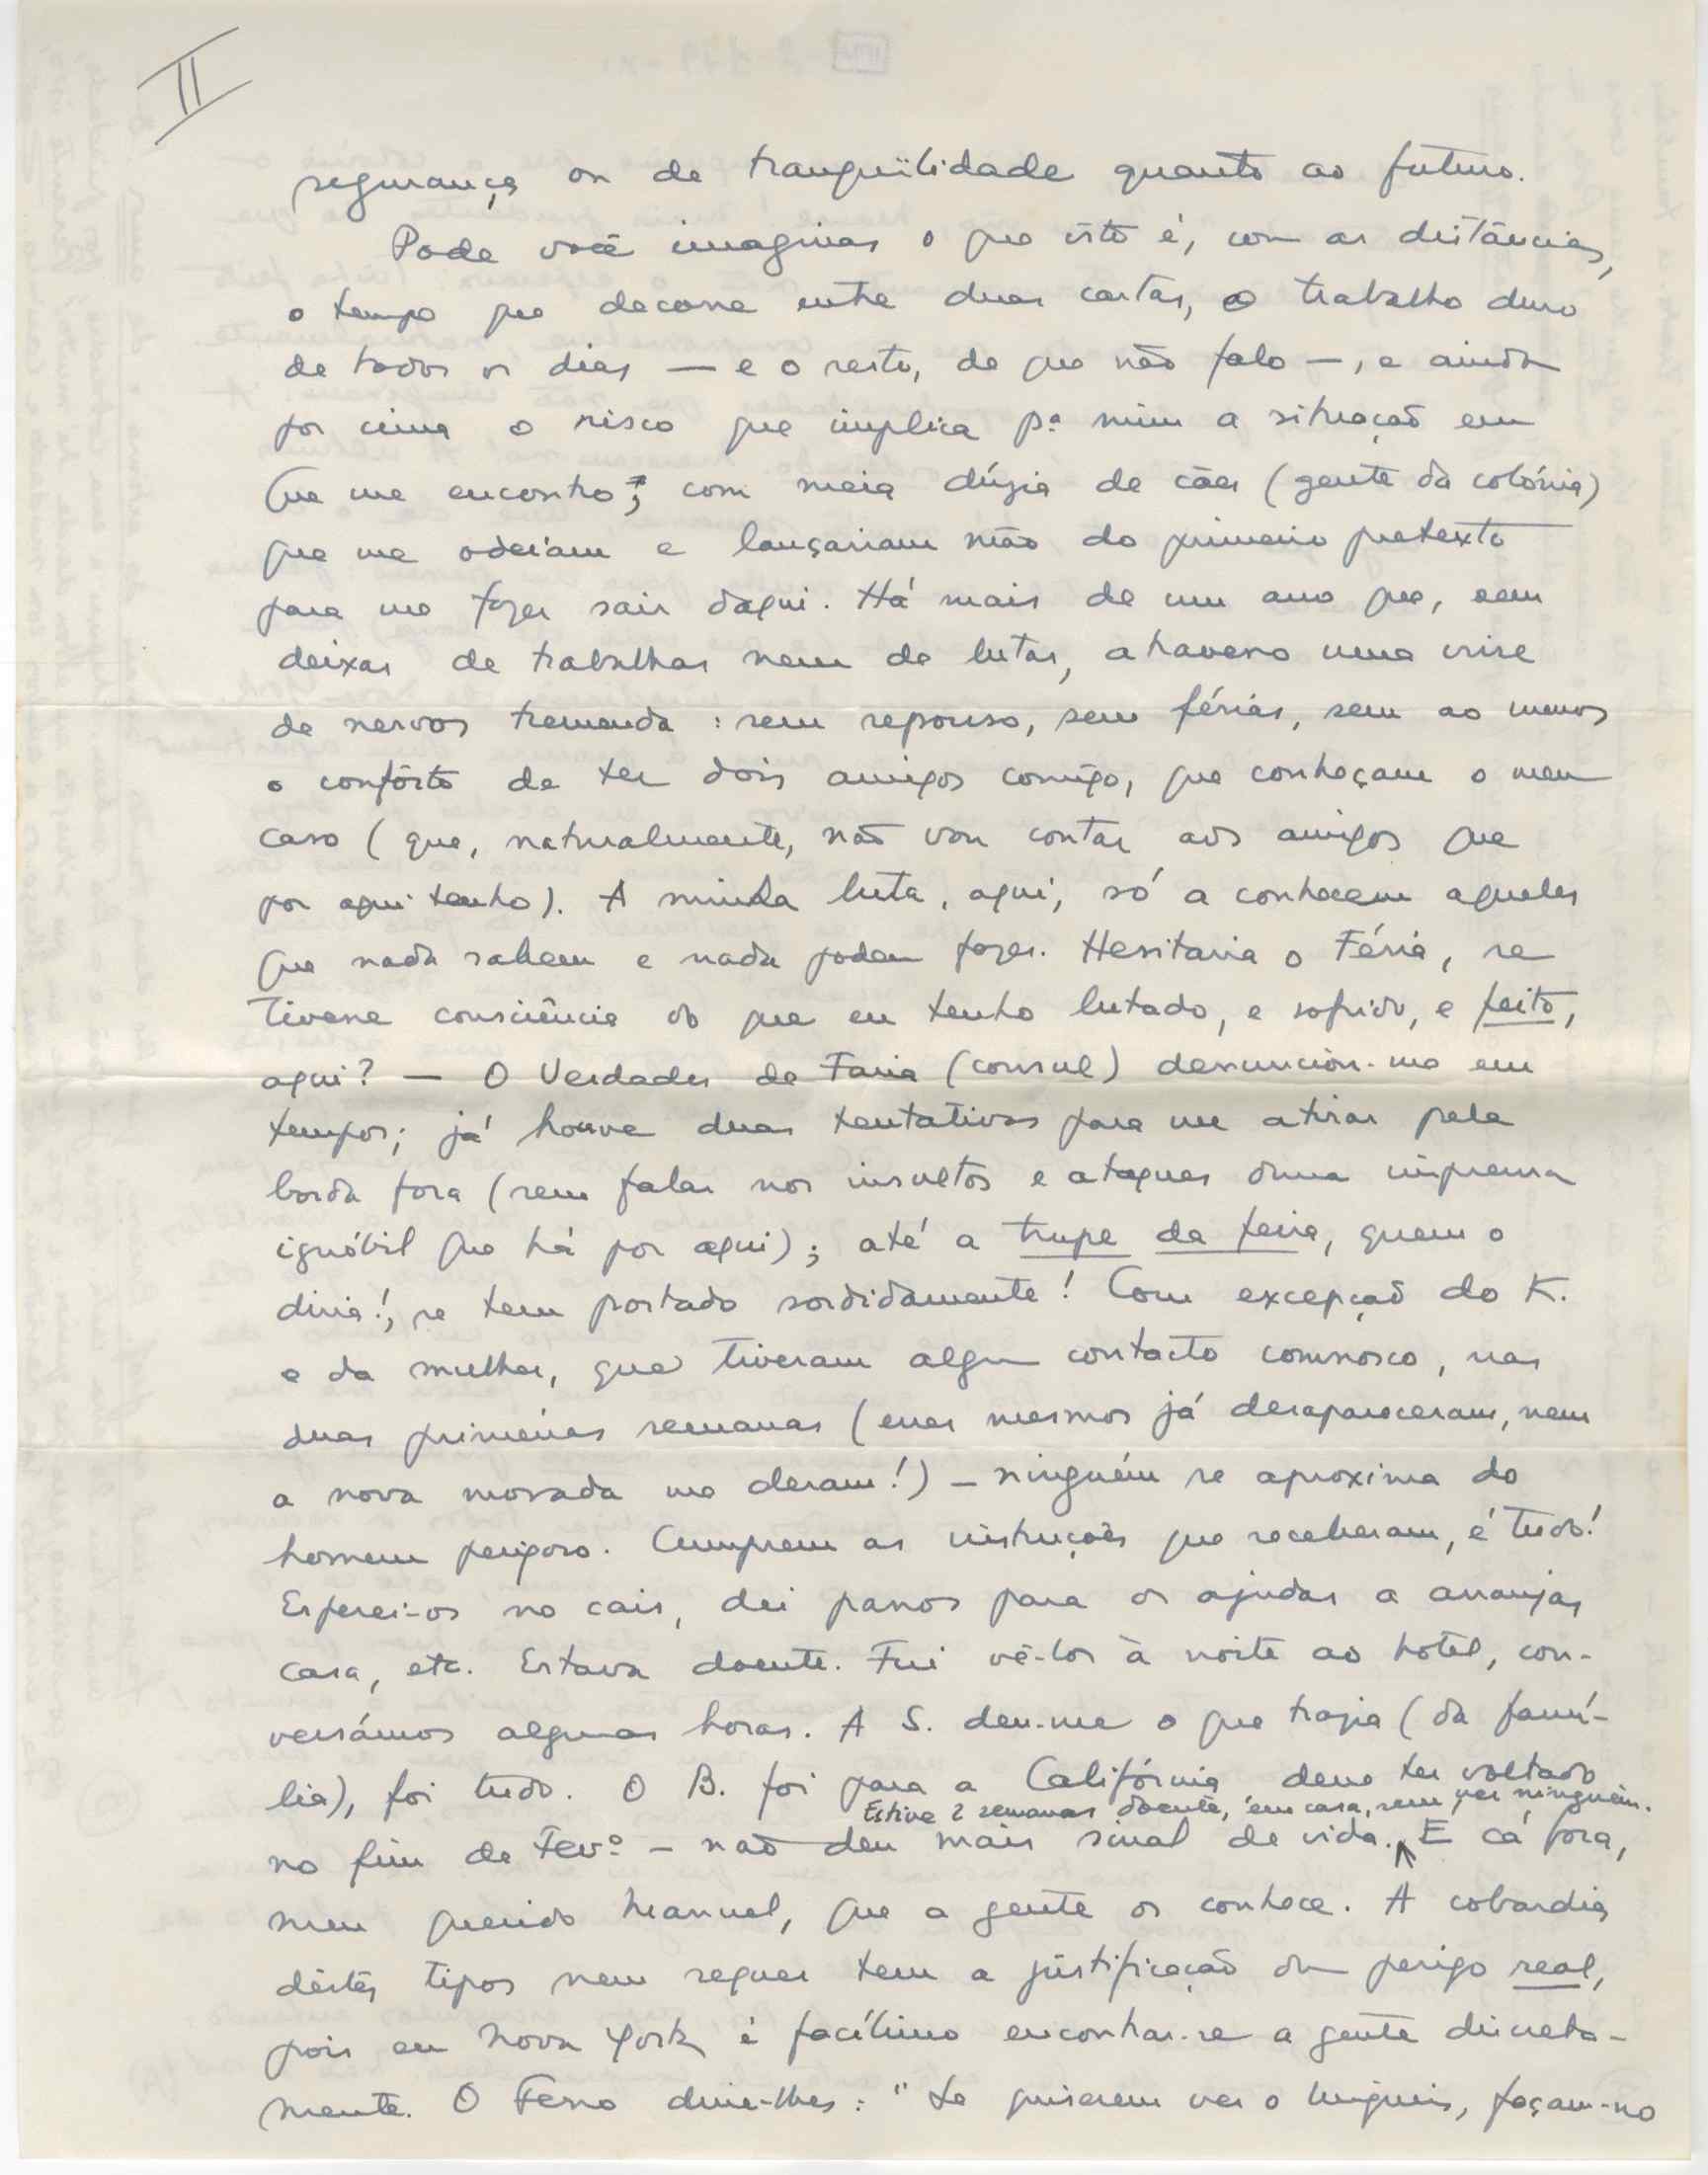 II
segurança ou de tranqüilidade quanto ao futuro.
Pode você imaginar o que isto é, com as distâncias,
o tempo que decorre entre duas cartas, o trabalho duro
de todos os dias — e o resto, de que não falo —, e ainda
por cima o risco que implica pª mim a situação em
que me encontro; com meia dúzia de cães (gente da colónia)
que me odeiam e lançariam mão do primeiro pretexto
para me fazer sair daqui. Há mais de um ano que, sem
deixar de trabalhar nem de lutar, atravesso uma crise
de nervos tremenda: sem repouso, sem férias, sem ao menos
o confôrto de ter dois amigos comigo, que conheçam o meu
caso (que, naturalmente, não vou contar aos amigos que
por aqui tenho). A minha luta, aqui, só a conhecem aqueles
que nada sabem e nada podem fazer. Hesitaria o Féria, se
tivesse consciência do que eu tenho lutado, e sofrido, e feito,
aqui? — O Verdades de Faria (consul) denunciou-me em
tempos; já houve duas tentativas para me atirar pela
borda fora (sem falar nos insultos e ataques duma imprensa
ignóbil que há por aqui); até a trupe da feira, quem o
diria!, se tem portado sordidamente! Com excepção do K.
e da mulher, que tiveram algum contacto connosco, nas
duas primeiras semanas (esses mesmos já desapareceram, nem
a nova morada me deram!) — ninguém se aproxima do
homem perigoso. Cumprem as instruções que receberam, é tudo!
Esperei-os no cais, dei passos para os ajudar a arranjar
casa, etc. Estava doente. Fui vê-los à noite ao hotel, con-
versámos algumas horas. A S. deu-me o que trazia (da famí-
lia), foi tudo. O B. foi para a Califórnia, deve ter voltado
Estive 2 semanas doente, em casa, sem ver ninguém.
no fim de Fevº — não deu mais sinal de vida. E cá fora,
meu querido Manuel, que a gente os conhece. A cobardia
dêstes tipos nem sequer tem a justificação dum perigo real,
pois em Nova York é facílimo encontrar-se a gente discreta-
mente. O Ferro disse-lhes: "Se quiserem ver o Migueis, façam-no